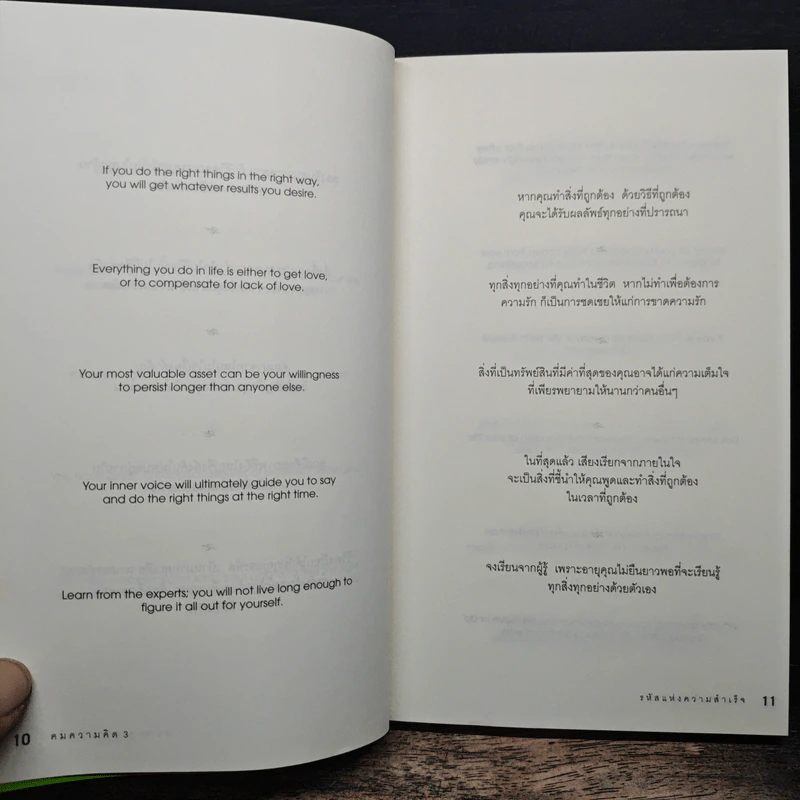 If you do the right things in the right way,
you will get whatever results you desire.
Everything you do in life is either to get love,
or to compensate for lack of love.
Your most valuable asset can be your willingness
to persist longer than anyone else.
Your inner voice will ultimately guide you to say
and do the right things at the right time.
Learn from the experts; you will not live long enough to
figure it all out for yourself.
10 คมความคิด 3
หากคุณทำสิ่งที่ถูกต้อง ด้วยวิธีที่ถูกต้อง
คุณจะได้รับผลลัพธ์ทุกอย่างที่ปรารถนา
ทุกสิ่งทุกอย่างที่คุณทำในชีวิต หากไม่ทำเพื่อต้องการ
ความรัก ก็เป็นการชดเชยให้แก่การขาดความรัก
สิ่งที่เป็นทรัพย์สินที่มีค่าที่สุดของคุณอาจได้แก่ความเต็มใจ
ที่เพียรพยายามให้นานกว่าคนอื่นๆ
ในที่สุดแล้ว เสียงเรียกจากภายในใจ
จะเป็นสิ่งที่ชี้นำให้คุณพูดและทำสิ่งที่ถูกต้อง
ในเวลาที่ถูกต้อง
จงเรียนจากผู้รู้ เพราะอายุคุณไม่ยืนยาวพอที่จะเรียนรู้
ทุกสิ่งทุกอย่างด้วยตัวเอง
รหัสแห่งความสำเร็จ 11